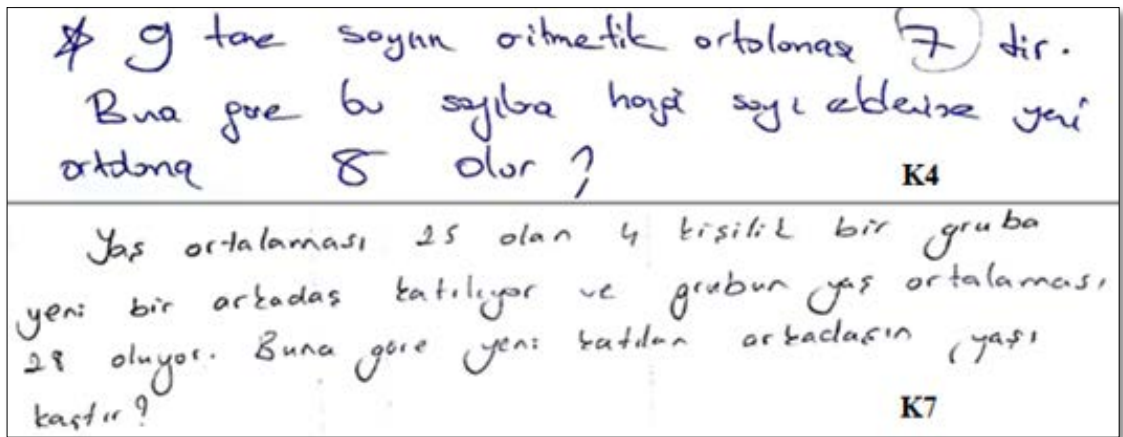 * 9 tane sayının aritmetik ortalaması 7 dir.
Buna göre bu sayılara hangi sayı eklenirse yeni
ortalama 8 olur?
K4
Yaş ortalaması 25 olan 4 kişilik bir gruba
yeni bir arkadaş katılıyor ve grubun yaş ortalaması
28 oluyor. Buna göre yeni katılan arkadaşın yaşı
kaçtır?
K7